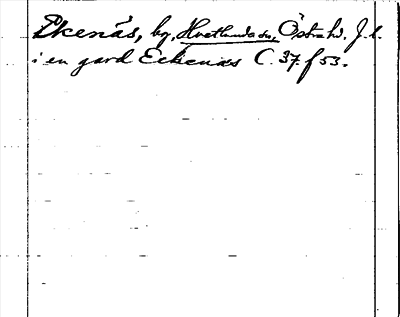 Ekenäs, by, Hvetlanda sn, Östra hd. J. l.
i en gard Eckenæs C. 37. f 53.